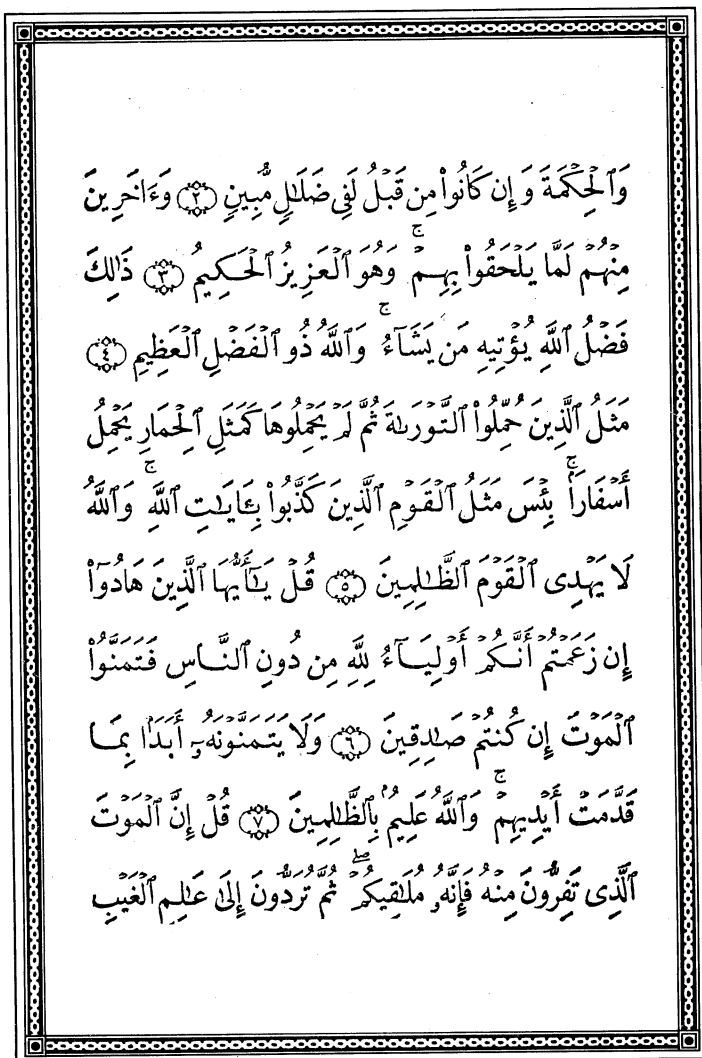 وَٱلْحِكْمَةَ وَإِن كَانُوا۟ مِن قَبْلُ لَفِى ضَلَٰلٍ مُّبِينٍ ٢ وَءَاخَرِينَ
مِنْهُمْ لَمَّا يَلْحَقُوا۟ بِهِمْ ۚ وَهُوَ ٱلْعَزِيزُ ٱلْحَكِيمُ ٣ ذَٰلِكَ
فَضْلُ ٱللَّهِ يُؤْتِيهِ مَن يَشَآءُ ۚ وَٱللَّهُ ذُو ٱلْفَضْلِ ٱلْعَظِيمِ ٤
مَثَلُ ٱلَّذِينَ حُمِّلُوا۟ ٱلتَّوْرَىٰةَ ثُمَّ لَمْ يَحْمِلُوهَا كَمَثَلِ ٱلْحِمَارِ يَحْمِلُ
أَسْفَارًۢا ۚ بِئْسَ مَثَلُ ٱلْقَوْمِ ٱلَّذِينَ كَذَّبُوا۟ بِـَٔايَٰتِ ٱللَّهِ ۚ وَٱللَّهُ
لَا يَهْدِى ٱلْقَوْمَ ٱلظَّٰلِمِينَ ٥ قُلْ يَٰٓأَيُّهَا ٱلَّذِينَ هَادُوٓا۟
إِن زَعَمْتُمْ أَنَّكُمْ أَوْلِيَآءُ لِلَّهِ مِن دُونِ ٱلنَّاسِ فَتَمَنَّوُا۟
ٱلْمَوْتَ إِن كُنتُمْ صَٰدِقِينَ ٦ وَلَا يَتَمَنَّوْنَهُۥٓ أَبَدًۢا بِمَا
قَدَّمَتْ أَيْدِيهِمْ ۚ وَٱللَّهُ عَلِيمٌۢ بِٱلظَّٰلِمِينَ ٧ قُلْ إِنَّ ٱلْمَوْتَ
ٱلَّذِى تَفِرُّونَ مِنْهُ فَإِنَّهُۥ مُلَٰقِيكُمْ ۖ ثُمَّ تُرَدُّونَ إِلَىٰ عَٰلِمِ ٱلْغَيْبِ